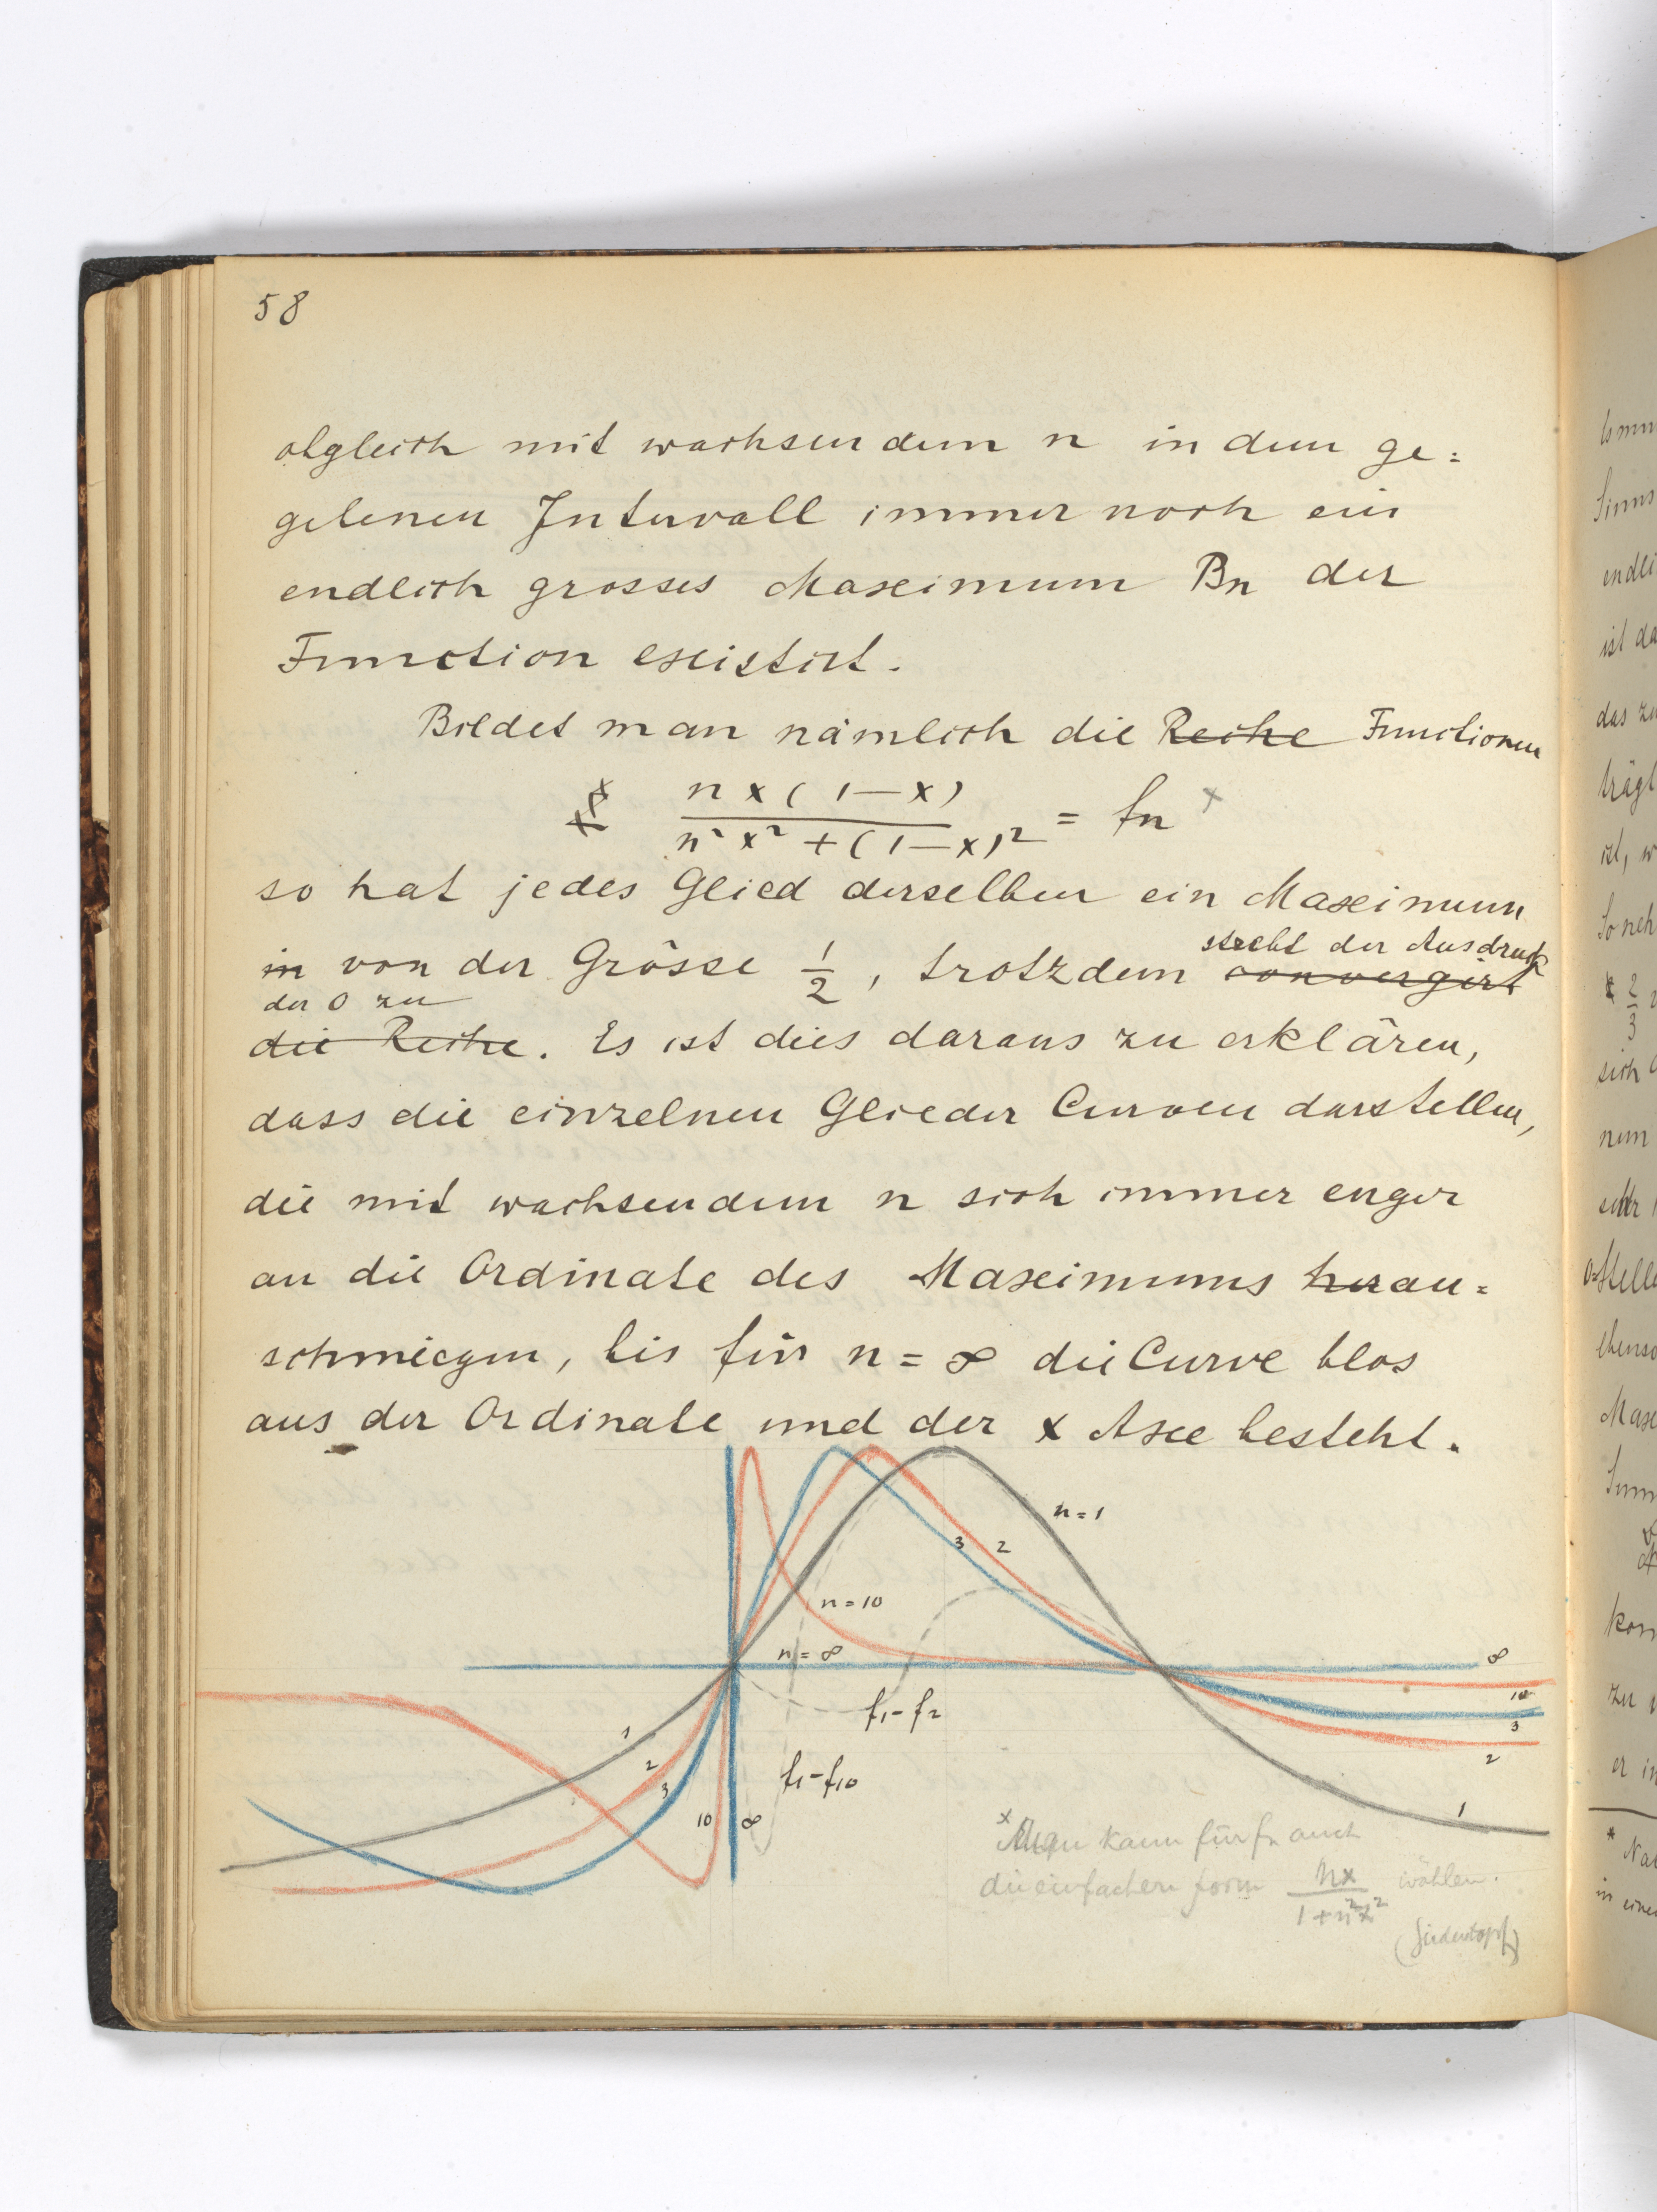 58
obgleich mit wachsendem n in dem ge=
gebenen Intervall immer noch ein
endlich grosses Maximum Bn der
Function existirt.
Bildet man nämlich die Reihe Functionen
x nx(1—x) / n²x² + (1—x)² = fn x
so hat jedes Glied derselben ein Maximum
in von der Grösse 1/2, trotzdem convergirt strebt der Ausdruck
der 0 zu
die Reihe. Es ist dies daraus zu erklären,
dass die einzelnen Glieder Curven darstellen,
die mit wachsendem n sich immer enger
an die Ordinate des Maximums heran=
schmiegen, bis für n = ∞ die Curve blos
aus der Ordinate und der x Axe besteht.
n = 1
3 2
n = 10
n = ∞
∞
10
3
2
1
f₁ - f₂
f₁ - f₁₀
1
2
3
10 ∞
x Man kann für fn auch
die einfachere Form nx / 1 + n²x² wählen.